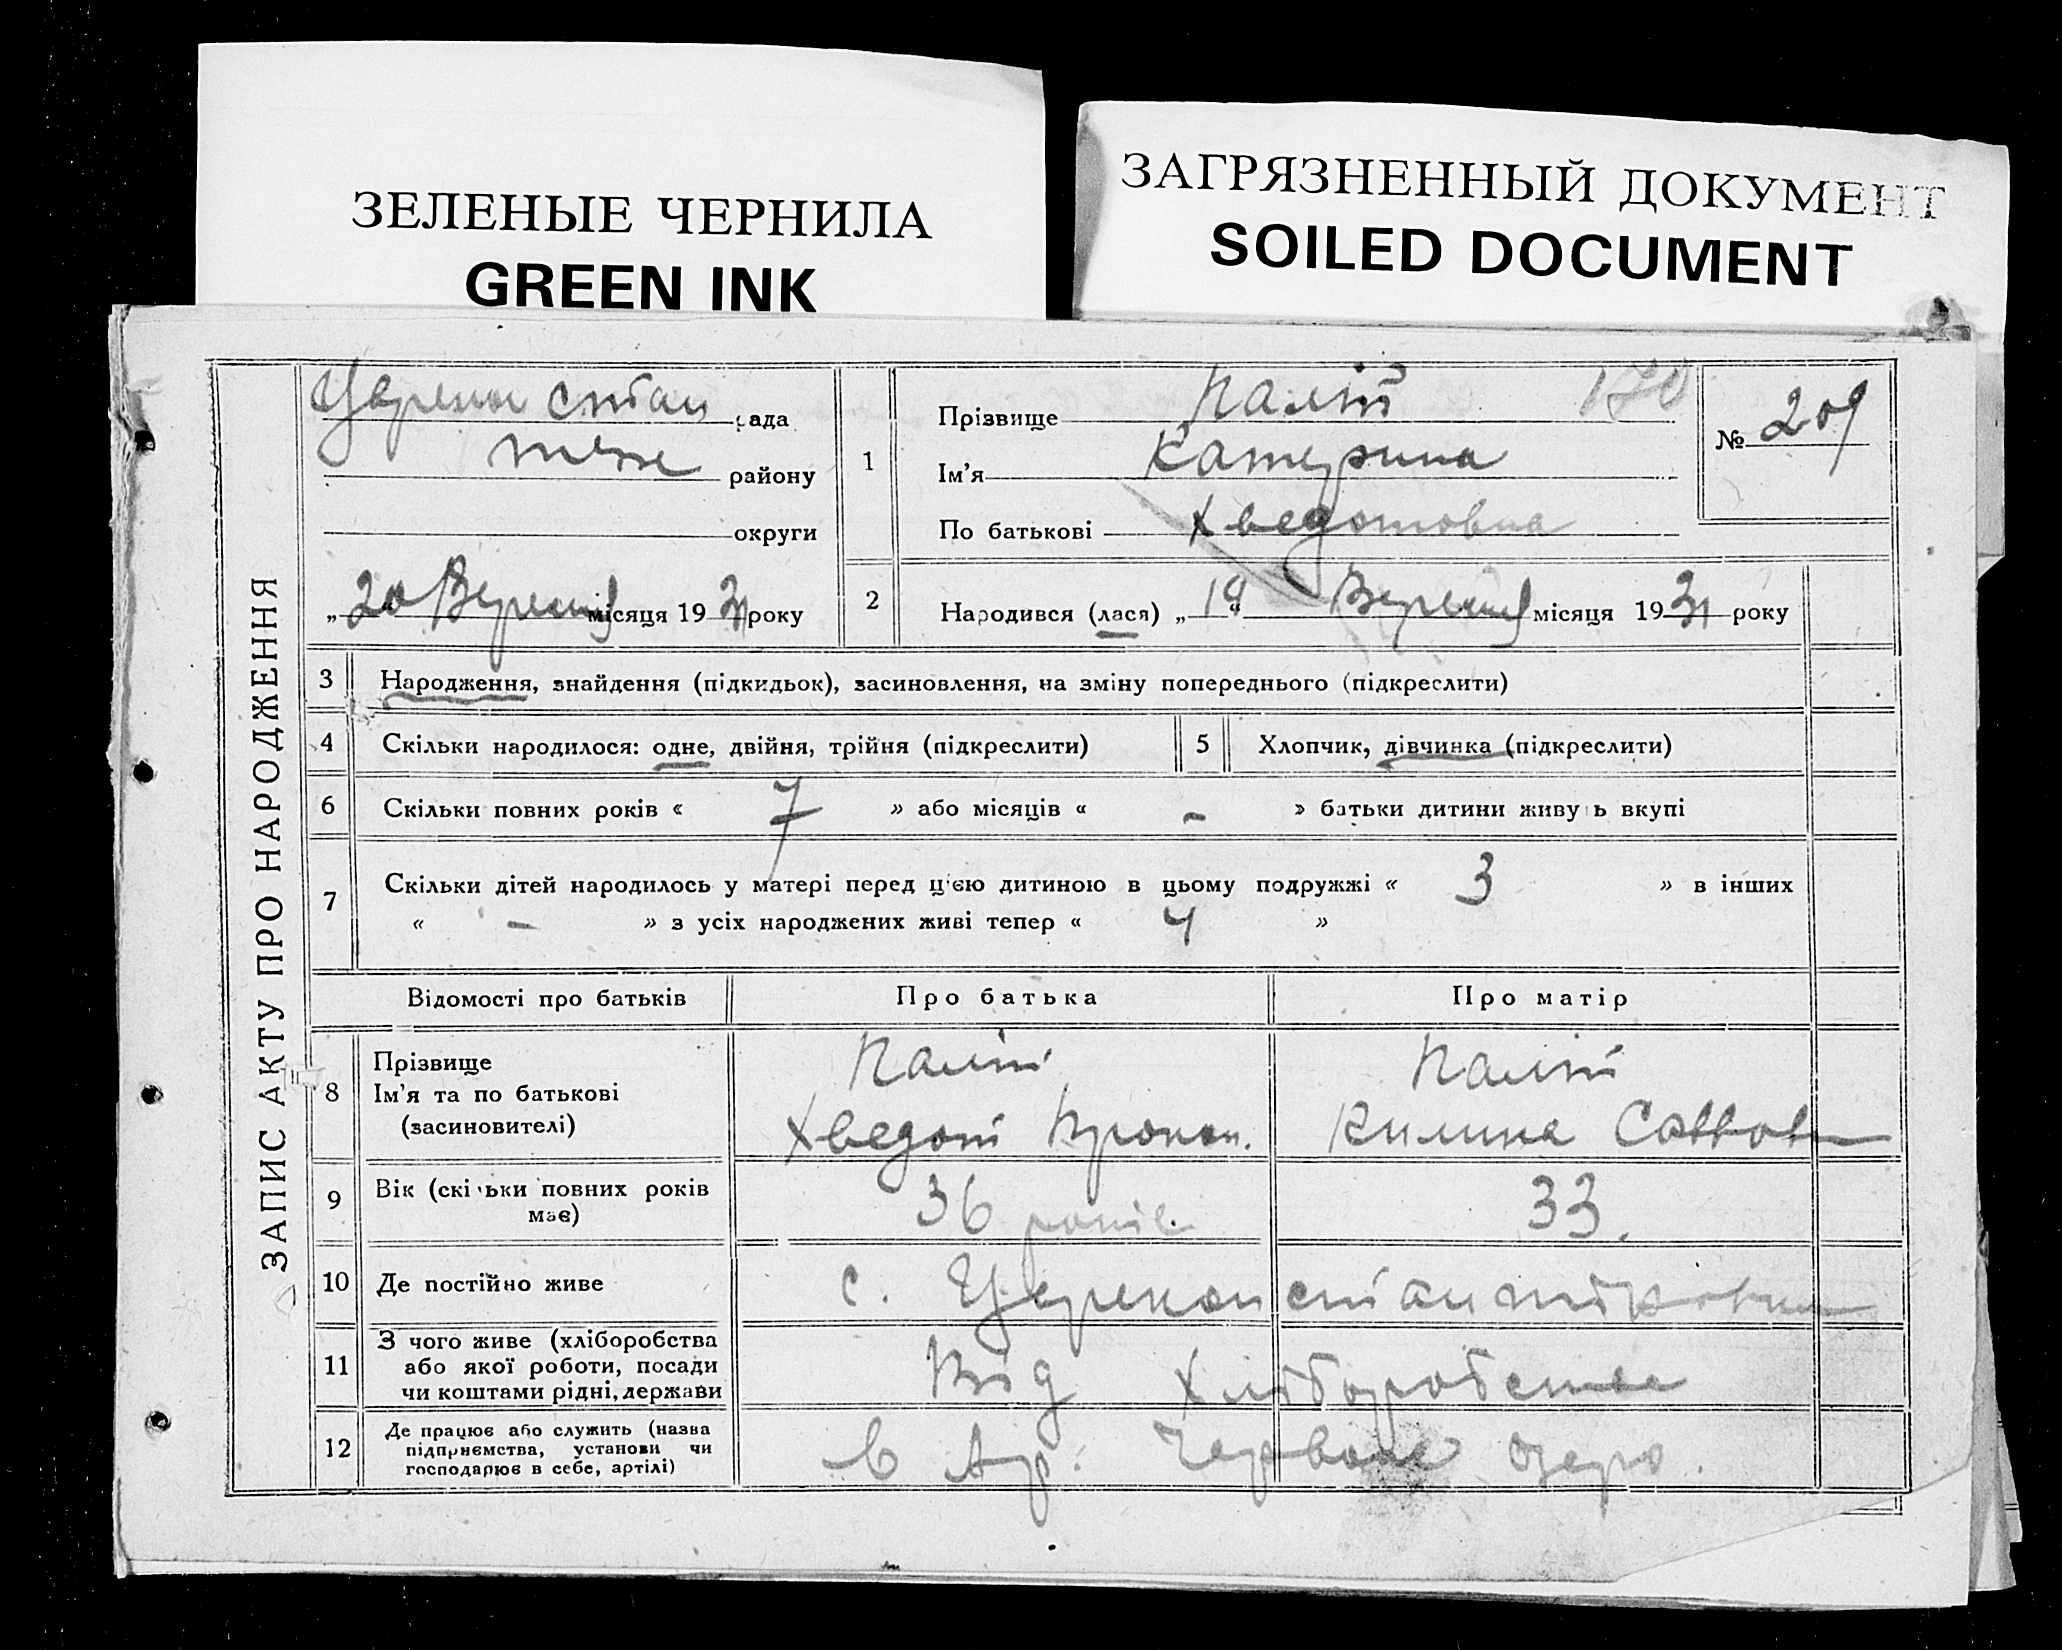 ЗЕЛЕНЫЕ ЧЕРНИЛА
GREEN INK
ЗАГРЯЗНЕННЫЙ ДОКУМЕНТ
SOILED DOCUMENT
ЗАПИС АКТУ ПРО НАРОДЖЕННЯ
рада
теж району
округи
„ 20 " Вересня місяця 1931 року
1
Прізвище Паліт 170
Ім'я Катерина
По батькові Хведотовна
№ 209
2 Народився (лася) „ 18 " Вересня місяця 1931 року
3 Народження, знайдення (підкидьок), засиновлення, на зміну попереднього (підкреслити)
4 Скільки народилося: одне, двійня, трійня (підкреслити)
5 Хлопчик, дівчинка (підкреслити)
6 Скільки повних років « 7 » або місяців « - » батьки дитини живуть вкупі
7 Скільки дітей народилось у матері перед цією дитиною в цьому подружжі « 3 » в інших
« - » з усіх народжених живі тепер « 4 »
Відомості про батьків Про батька Про матір
8 Прізвище Паліт Паліт
Ім'я та по батькові Хведот Прокоп. Килина Саввовн
(засиновителі)
9 Вік (скільки повних років має) 36 років 33.
10 Де постійно живе с.
11 З чого живе (хліборобства
або якої роботи, посади
чи коштами рідні, держави
Від хліборобства
12 Де працює або служить (назва
підприємства, установи чи
господарює в себе, артілі)
в Ар. Червоне озеро.